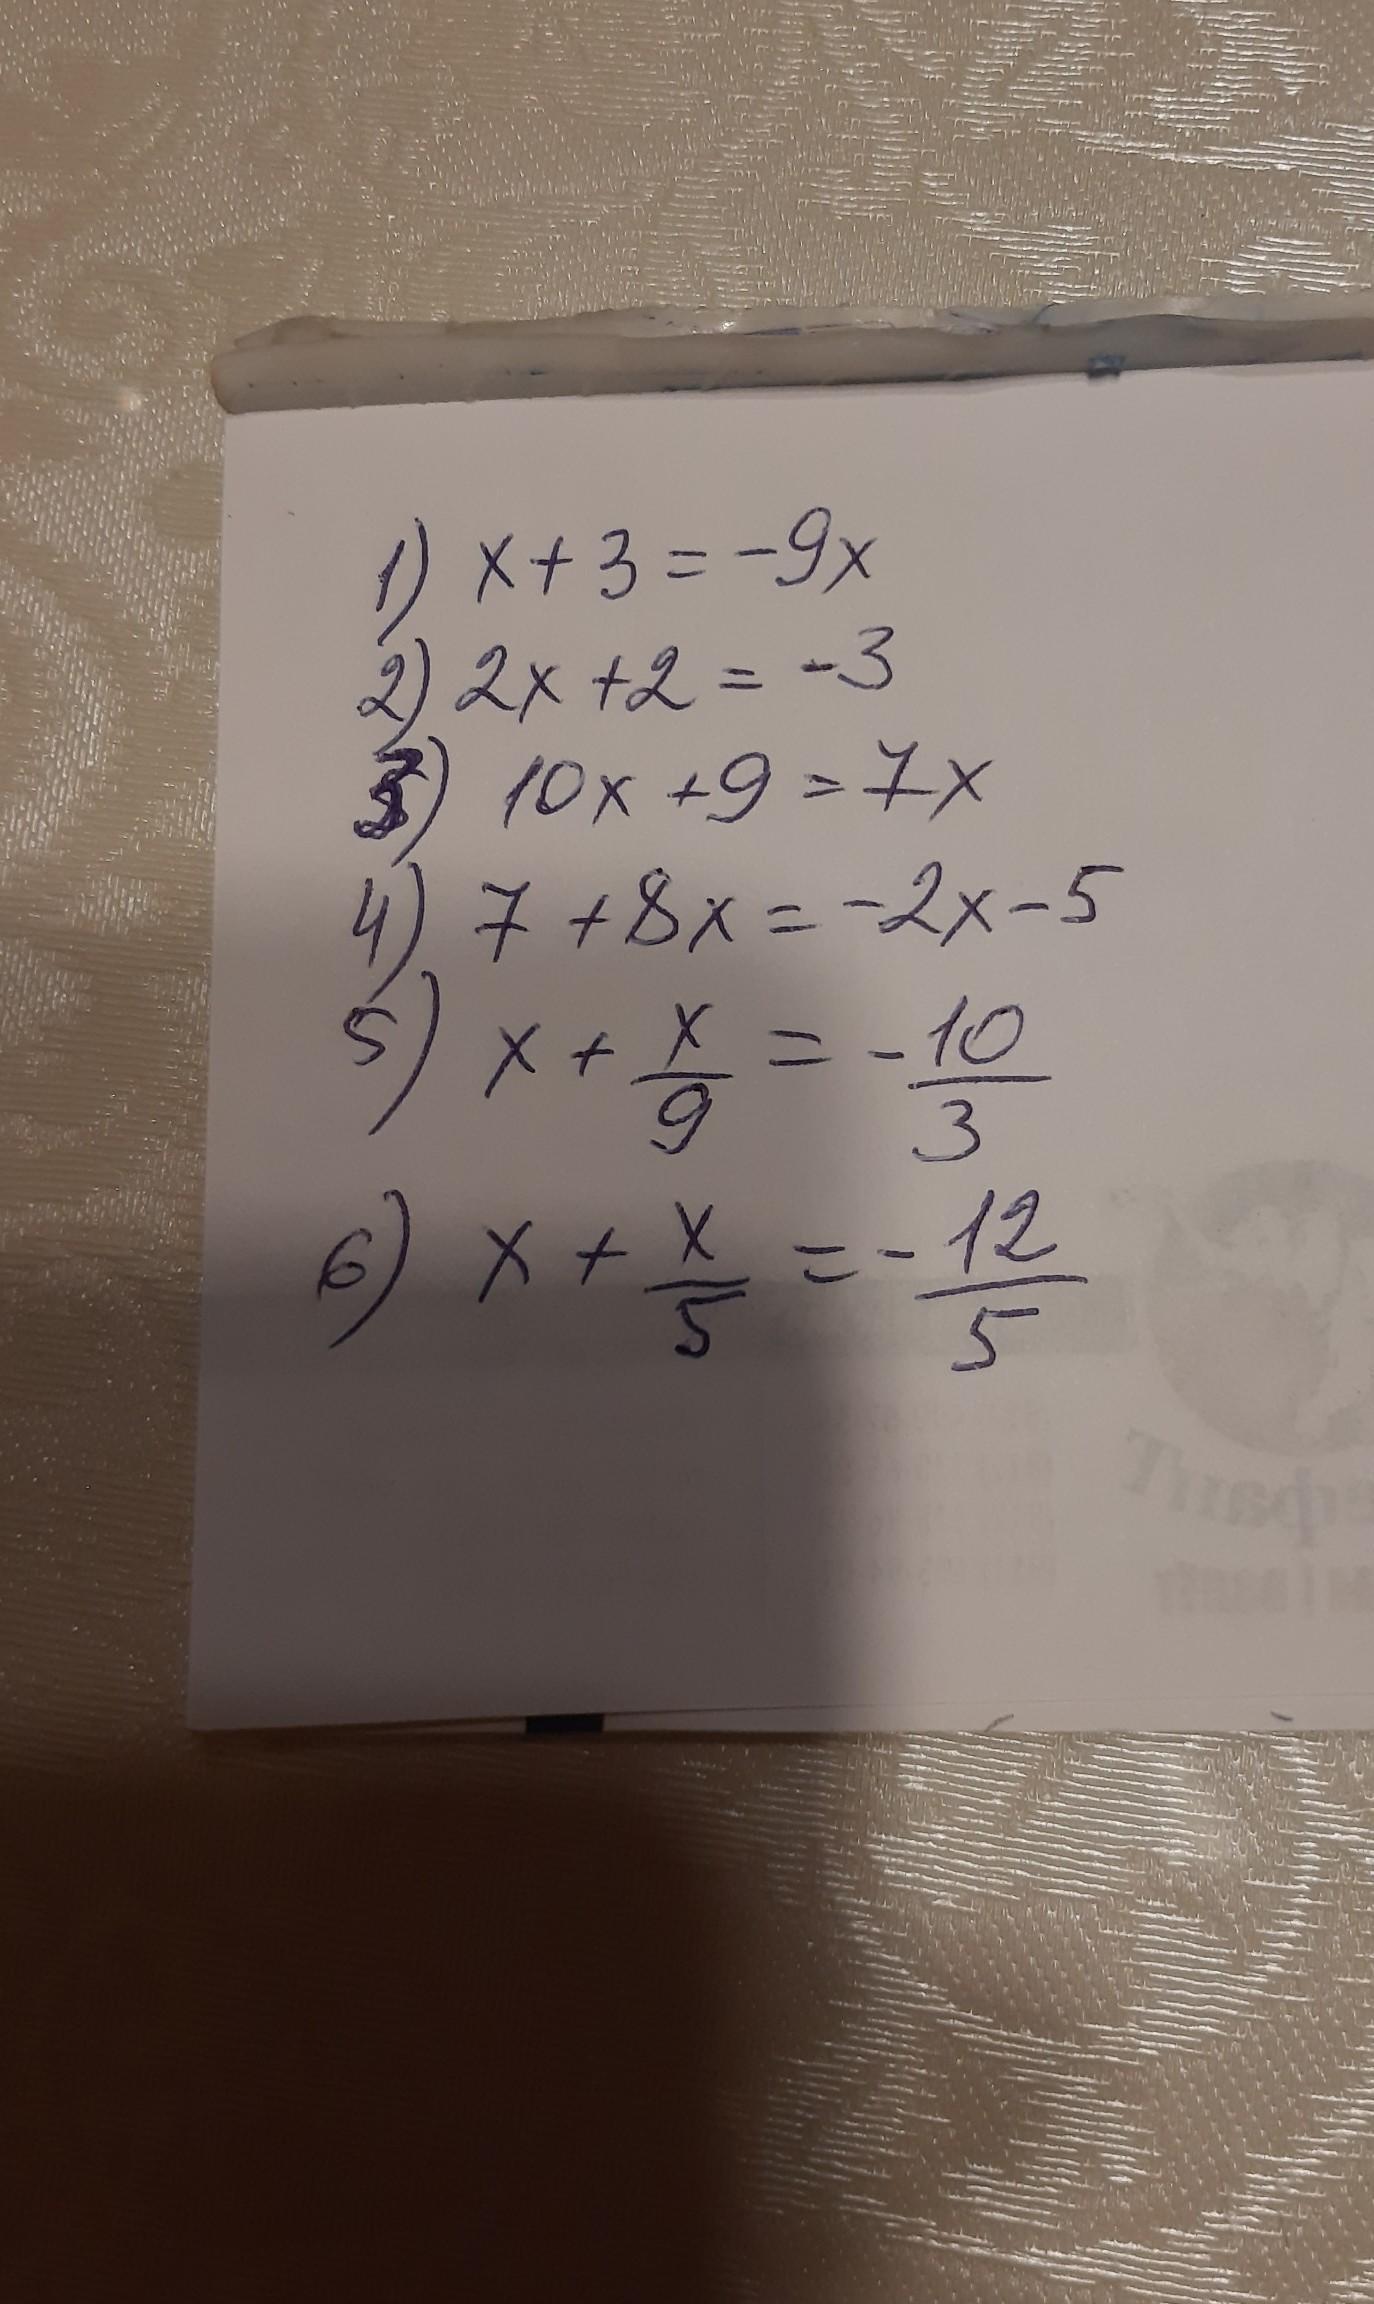 1) x + 3 = -9x
2) 2x + 2 = -3
3) 10x + 9 = 7x
4) 7 + 8x = -2x - 5
5) x + x/9 = -10/3
6) x + x/5 = -12/5